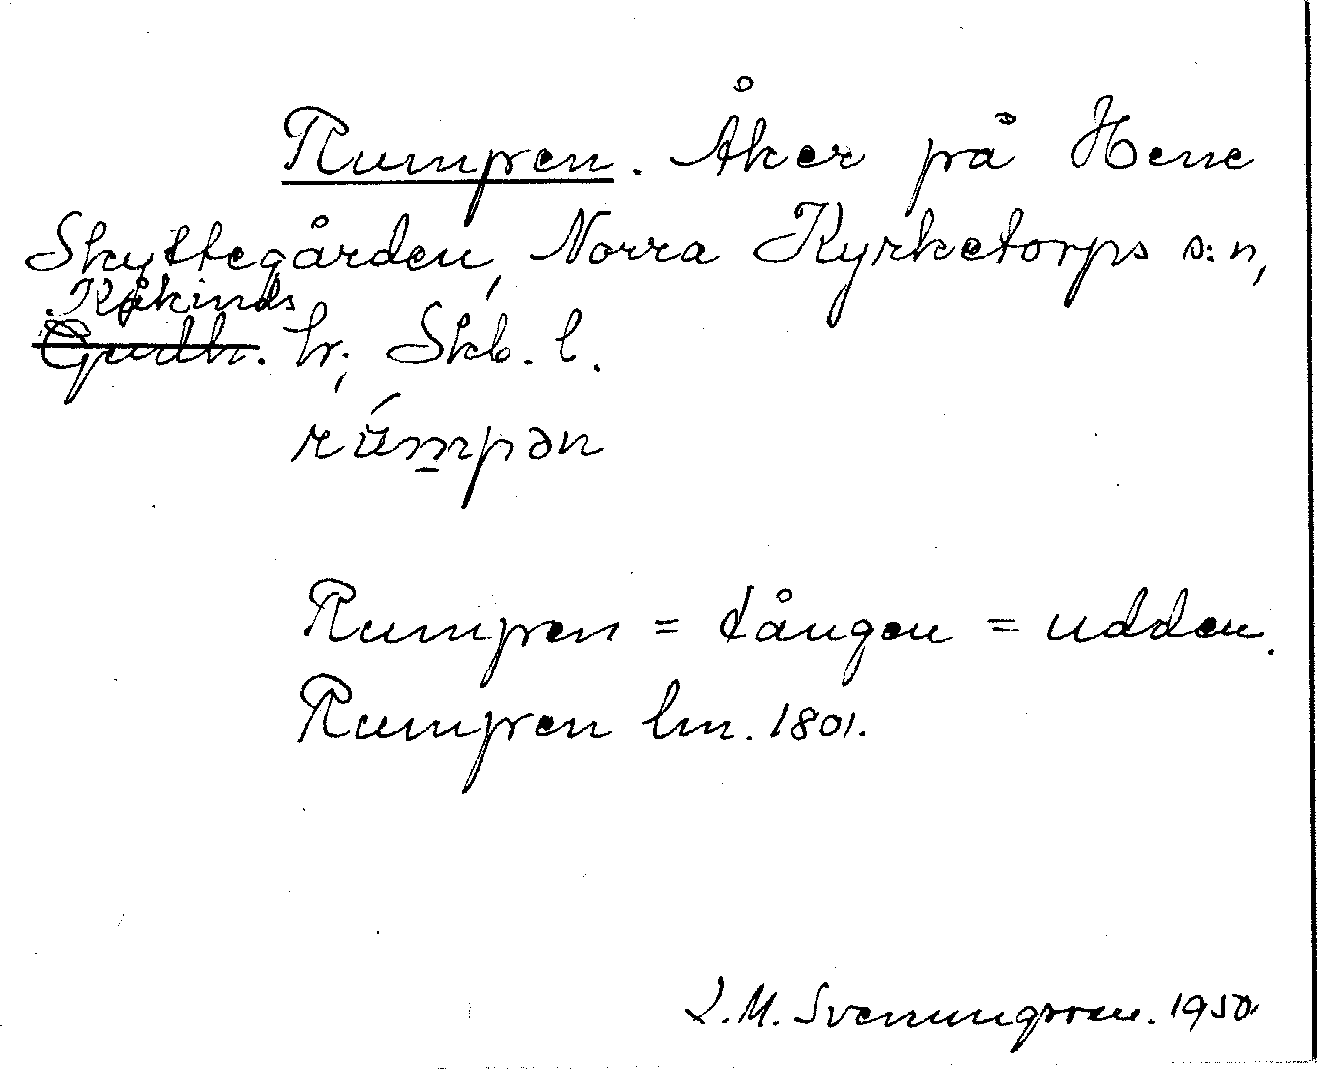 Rumpen. Åker på Hene
Skyttegården, Norra Kyrketorps s:n,
Kåkinds
Gudh. hr; Skb. l.
rúm̲pən
Rumpen = tången = udden.
Rumpen lm. 1801.
L.M. Svenungsson. 1950